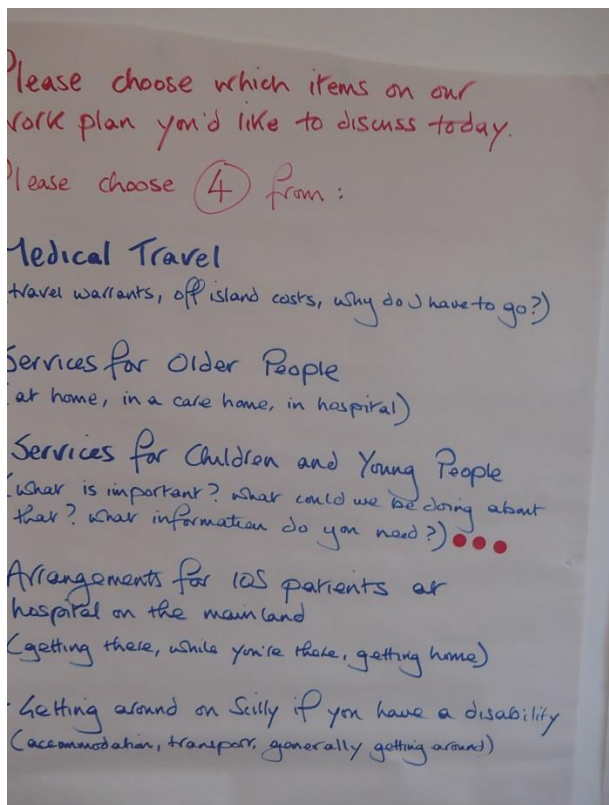 Please choose which items on our
work plan you'd like to discuss today.
Please choose 4 from:
Medical Travel
travel warrants, off island costs, why do I have to go?)
Services for Older People
(at home, in a care home, in hospital)
Services for Children and Young People
(what is important? what could we be doing about
that? what information do you need?)
Arrangements for IOS patients at
hospital on the mainland
(getting there, while you're there, getting home)
Getting around on Scilly if you have a disability
(accommodation, transport, generally getting around)